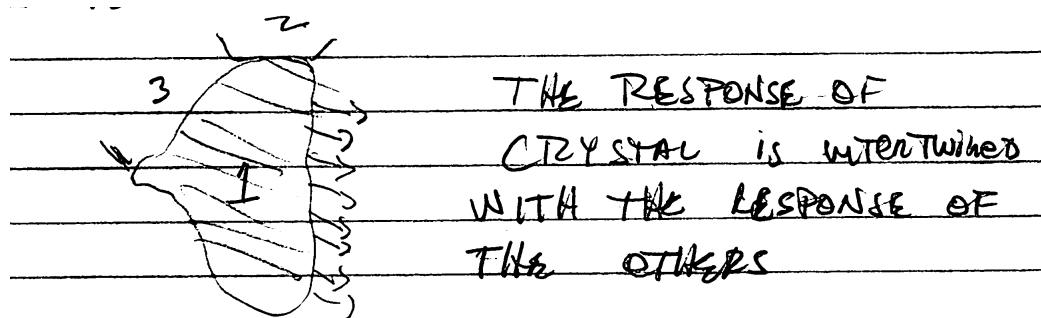 2
3
1
THE RESPONSE OF
CRYSTAL is intertwined
WITH THE RESPONSE OF
THE OTHERS